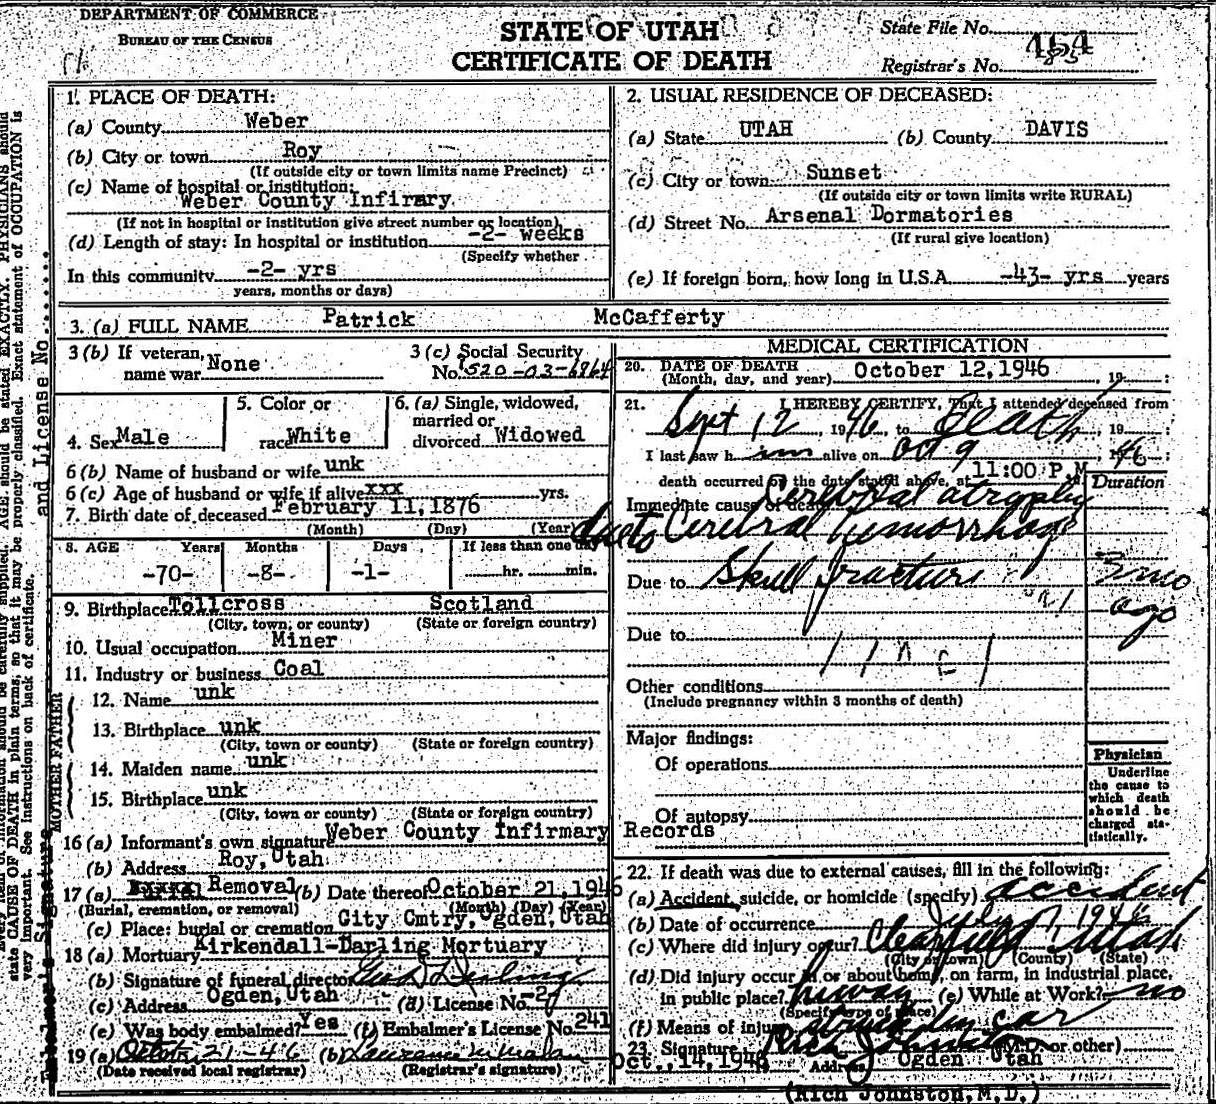 DEPARTMENT OF COMMERCE
BUREAU OF THE CENSUS
STATE OF UTAH
CERTIFICATE OF DEATH
State File No.
Registrar's No.
1. PLACE OF DEATH:
(a) County Weber
(b) City or town Roy
(If outside city or town limits name Precinct)
(c) Name of hospital or institution:
Weber County Infirary
(If not in hospital or institution give street number or location)
(d) Length of stay: In hospital or institution -2- weeks
(Specify whether
In this community -2- yrs
years, months or days)
2. USUAL RESIDENCE OF DECEASED:
(a) State UTAH (b) County DAVIS
(c) City or town Sunset
(If outside city or town limits write RURAL)
(d) Street No. Arsenal Dormatories
(If rural give location)
(e) If foreign born, how long in U.S.A. -43- yrs years
3. (a) FULL NAME Patrick McCafferty
3 (b) If veteran, name war None
3 (c) Social Security No. 520-03-6864
4. Sex Male
5. Color or race White
6. (a) Single, widowed, married or divorced Widowed
6 (b) Name of husband or wife unk
6 (c) Age of husband or wife if alive xxx yrs.
7. Birth date of deceased February 11, 1876
(Month) (Day) (Year)
8. AGE Years Months Days If less than one day
-70- -8- -1- hr. min.
9. Birthplace Tollcross Scotland
(City, town, or county) (State or foreign country)
10. Usual occupation Miner
11. Industry or business Coal
FATHER
12. Name unk
13. Birthplace unk
(City, town or county) (State or foreign country)
MOTHER
14. Maiden name unk
15. Birthplace unk
(City, town or county) (State or foreign country)
16 (a) Informant's own signature Weber County Infirmary Records
(b) Address Roy, Utah
17 (a) Removal (b) Date thereof October 21, 1946
(Burial, cremation, or removal) (Month) (Day) (Year)
(c) Place: burial or cremation City Cmtry, Ogden, Utah
18 (a) Mortuary Kirkendall-Darling Mortuary
(b) Signature of funeral director
(c) Address Ogden, Utah (d) License No. -2
(e) Was body embalmed? Yes (f) Embalmer's License No. 241
19 (a) October 21-46 (b)
(Date received local registrar) (Registrar's signature)
MEDICAL CERTIFICATION
20. DATE OF DEATH October 12, 1946, 19 :
(Month, day, and year)
21. I HEREBY CERTIFY, That I attended deceased from
Sept 12, 1946, to Death, 19 :
I last saw h im alive on Oct 9, 1946 ;
death occurred on the date stated above, at 11:00 P M
Duration
Immediate cause of death Cerebral atrophy
due to Cerebral hemorrhage
Due to Skull fracture 3 mo
ago
Due to
Other conditions
(Include pregnancy within 3 months of death)
Major findings:
Of operations
Of autopsy
Physician
Underline
the cause to
which death
should be
charged sta-
tistically.
22. If death was due to external causes, fill in the following:
(a) Accident, suicide, or homicide (specify) accident
(b) Date of occurrence July 7, 1946
(c) Where did injury occur? Clearfield, Utah
(City or town) (County) (State)
(d) Did injury occur in or about home, on farm, in industrial place,
in public place? hiway (e) While at Work? no
(Specify type of place)
(f) Means of injury struck by car
23. Signature Rich Johnston (M.D. or other)
Oct., 14, 1946 Address Ogden Utah
(Rich Johnston, M.D.)
AGE should be stated EXACTLY. PHYSICIANS should
state CAUSE OF DEATH in plain terms, so that it may be properly classified. Exact statement of OCCUPATION is
very important. See instructions on back of certificate.
Embalmer's Signature and License No.